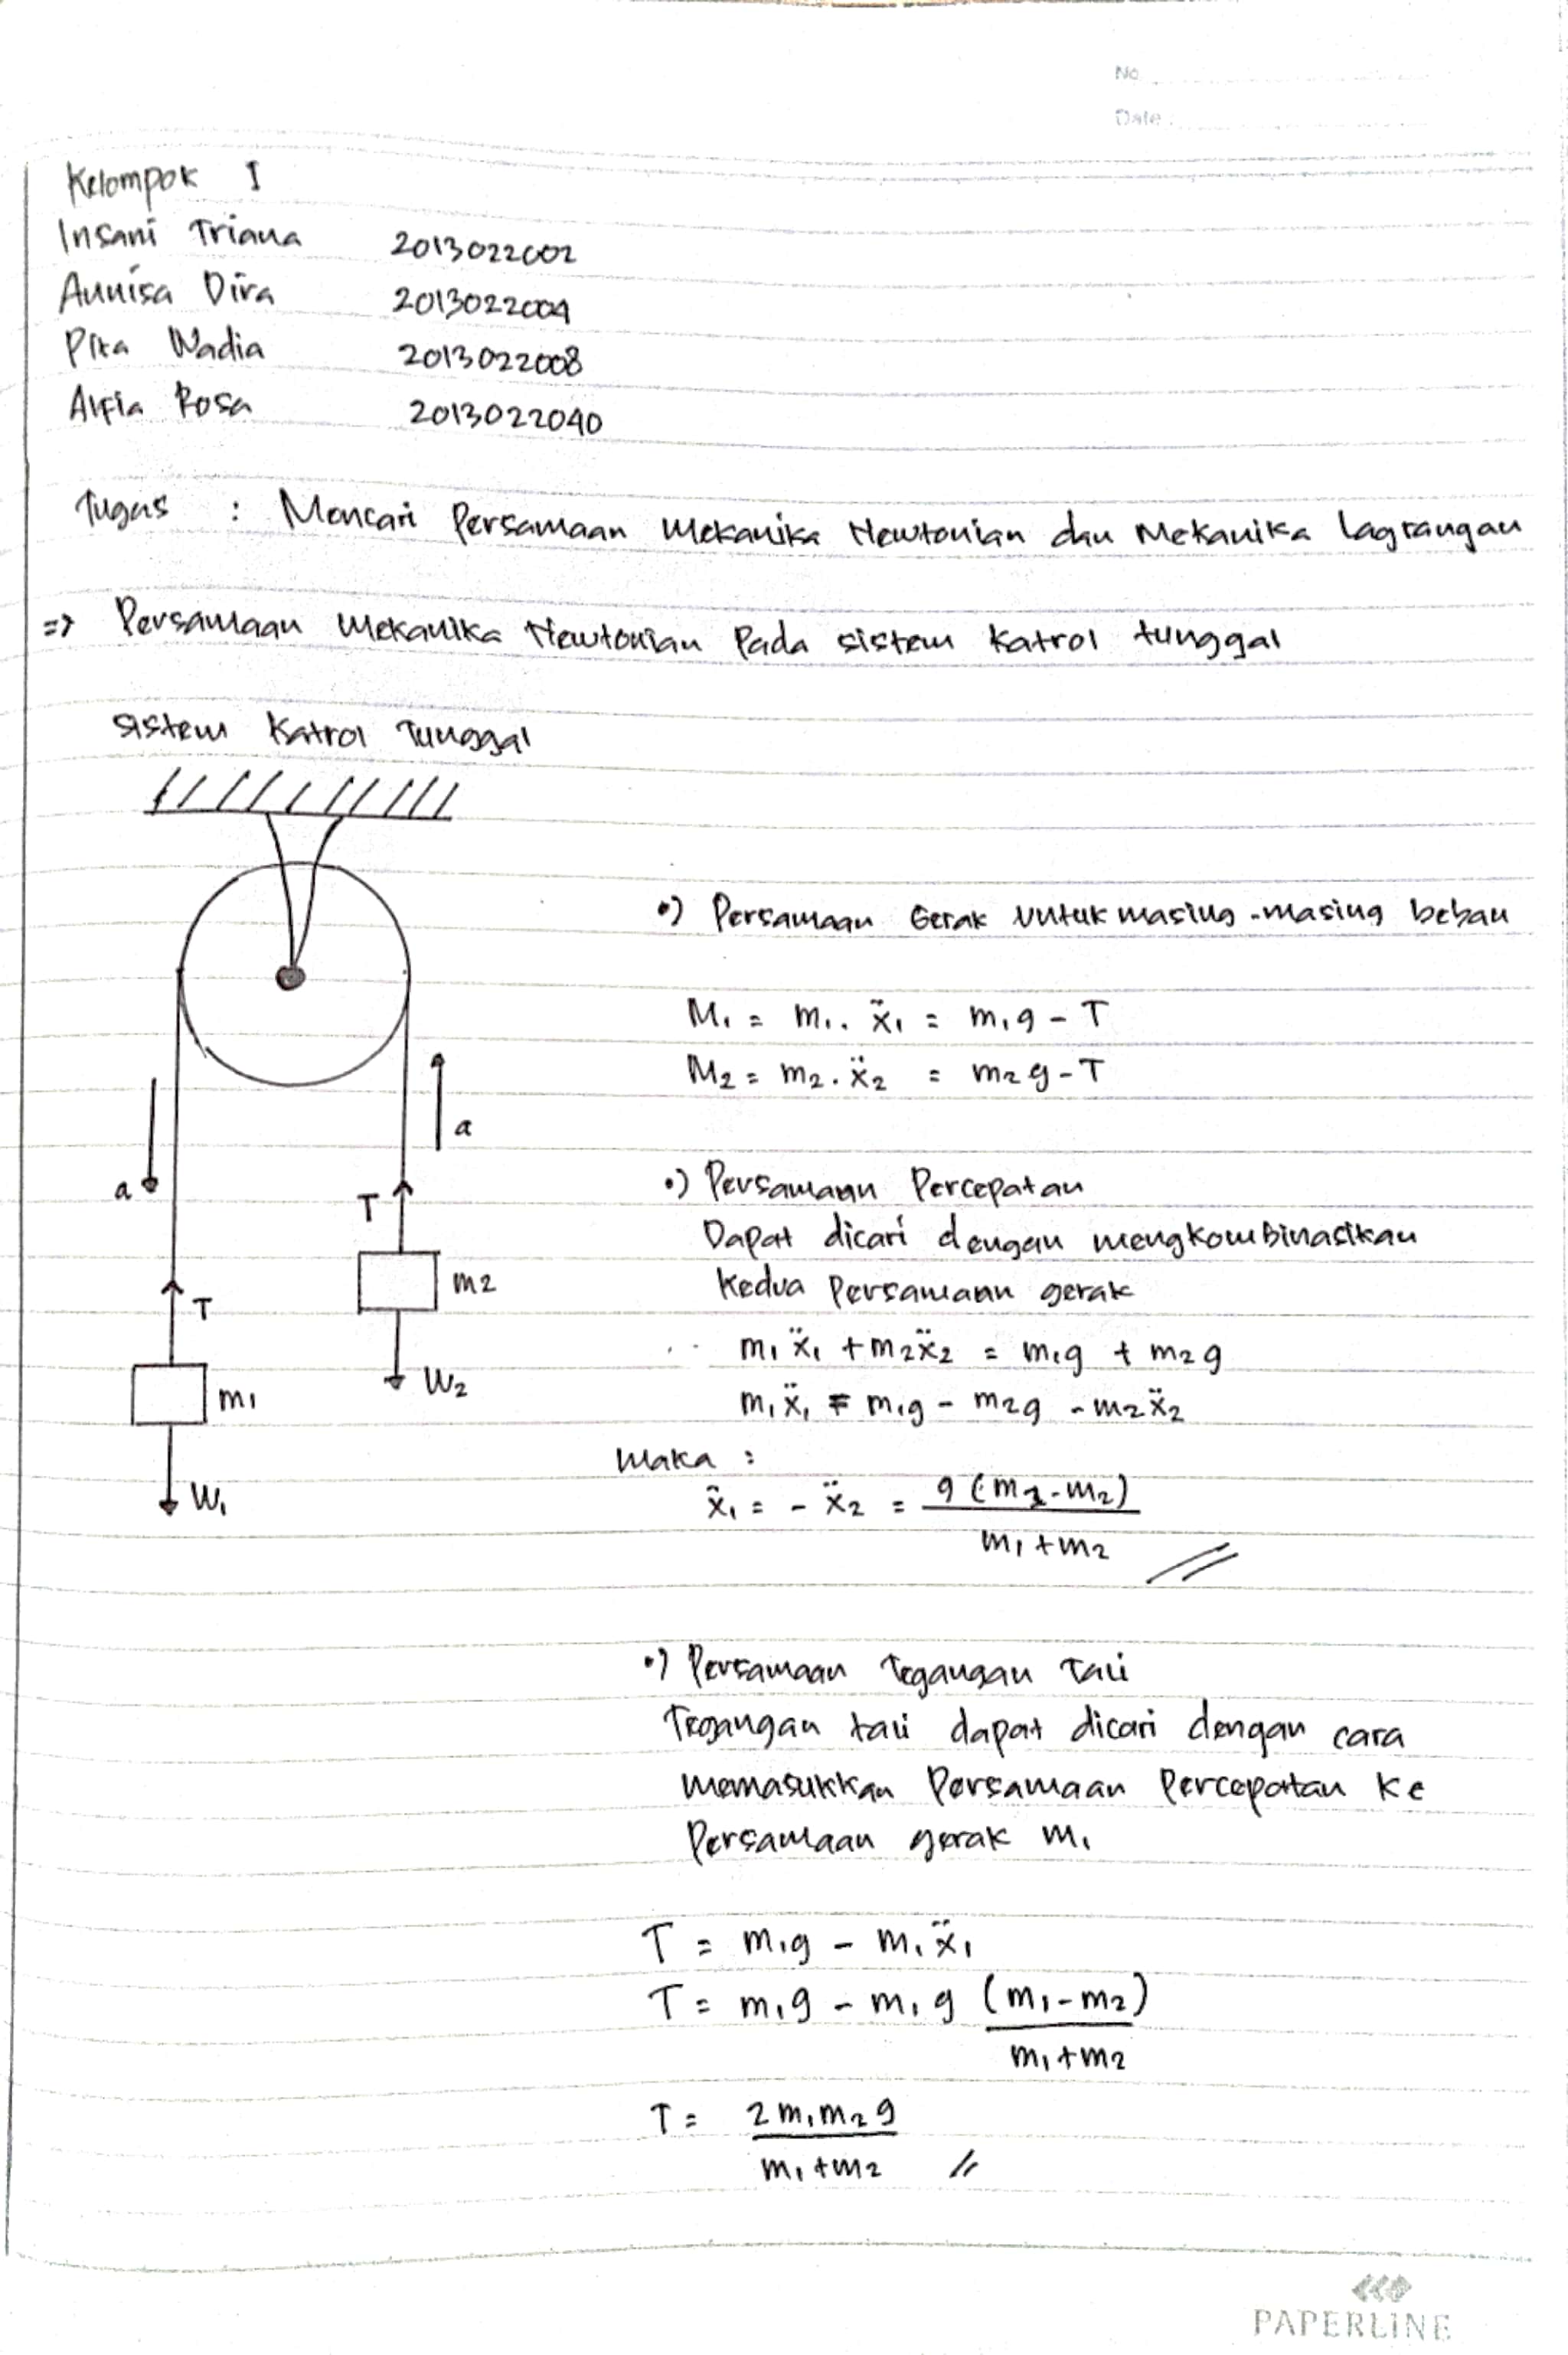 No
Date :
Kelompok I
Insani Triana 2013022002
Annisa Dira 2013022004
Pita Nadia 2013022008
Alfia Rosa 2013022040
Tugas : Mencari Persamaan Mekanika Newtonian dan Mekanika Lagrangan
=> Persamaan Mekanika Newtonian Pada sistem Katrol tunggal
Sistem Katrol Tunggal
•) Persamaan Gerak untuk masing-masing beban
M₁ = m₁. ẍ₁ = m₁g - T
M₂ = m₂. ẍ₂ = m₂g - T
a
a
T
m₂
W₂
T
m₁
W₁
•) Persamaan Percepatan
Dapat dicari dengan mengkombinasikan
kedua Persamaan gerak
m₁ẍ₁ + m₂ẍ₂ = m₁g + m₂g
m₁ẍ₁ = m₁g - m₂g - m₂ẍ₂
Maka :
ẍ₁ = - ẍ₂ = g (m₁-m₂)
m₁+m₂
•) Persamaan Tegangan Tali
Tegangan tali dapat dicari dengan cara
memasukkan Persamaan Percepatan ke
Persamaan gerak m₁
T = m₁g - m₁ẍ₁
T = m₁g - m₁g (m₁-m₂)
m₁+m₂
T = 2m₁m₂g
m₁+m₂ //
PAPERLINE